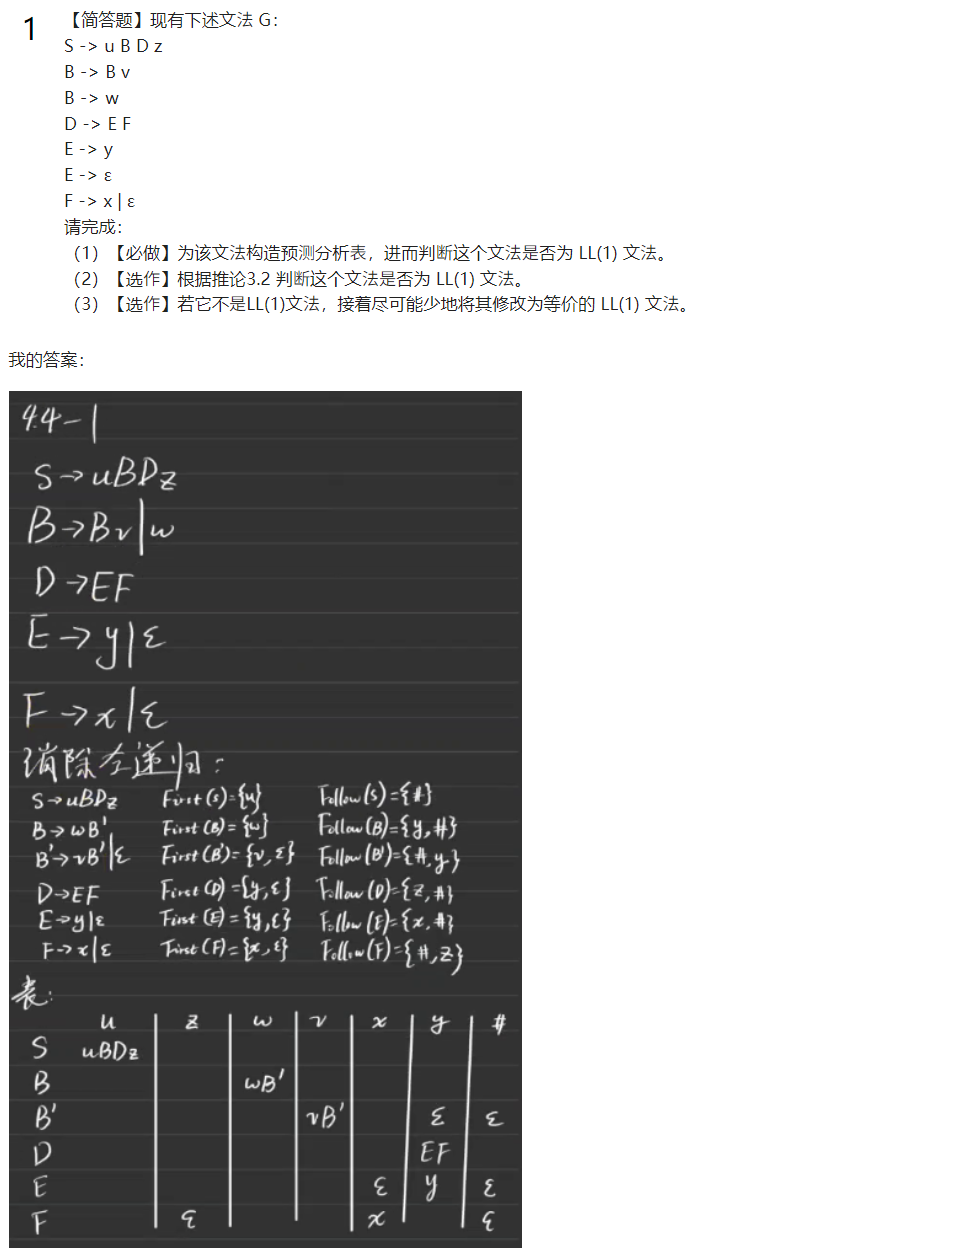 1
【简答题】现有下述文法 G：
S -> u B D z
B -> B v
B -> w
D -> E F
E -> y
E -> ε
F -> x | ε
请完成：
（1）【必做】为该文法构造预测分析表，进而判断这个文法是否为 LL(1) 文法。
（2）【选作】根据推论3.2 判断这个文法是否为 LL(1) 文法。
（3）【选作】若它不是LL(1)文法，接着尽可能少地将其修改为等价的 LL(1) 文法。
我的答案：
4.4-1
S→uBDz
B→Bv|w
D→EF
E→y|ε
F→x|ε
消除左递归：
S→uBDz First(S)={u} Follow(S)={#}
B→wB' First(B)={w} Follow(B)={y,#}
B'→vB'|ε First(B')={v,ε} Follow(B')={#,y}
D→EF First(D)={y,ε} Follow(D)={z,#}
E→y|ε First(E)={y,ε} Follow(E)={x,#}
F→x|ε First(F)={x,ε} Follow(F)={#,z}
表：
u z w v x y #
S uBDz
B wB'
B' vB' ε ε
D EF
E ε y ε
F ε x ε